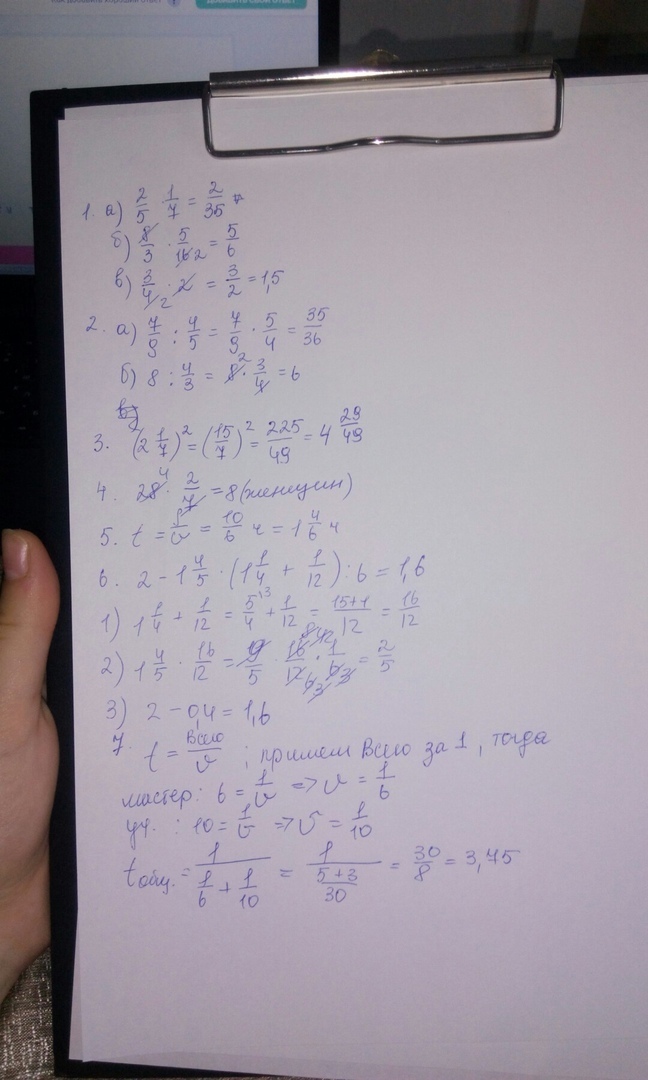 ДОБАВИТЬ СВОЙ ОТВЕТ
1. а) 2/5 · 1/7 = 2/35
б) 8/3 · 5/16 2 = 5/6
в) 3/4 2 · 2 = 3/2 = 1,5
2. а) 7/9 : 4/5 = 7/9 · 5/4 = 35/36
б) 8 : 4/3 = 8 2 · 3/4 = 6
3. (2 1/7)² = (15/7)² = 225/49 = 4 29/49
4. 28 4 · 2/7 = 8 (женщин)
5. t = S/v = 10/6 ч = 1 4/6 ч
6. 2 - 1 4/5 · (1 1/4 + 1/12) : 6 = 1,6
1) 1 1/4 + 1/12 = 5/4 + 1/12 = 15+1/12 = 16/12
2) 1 4/5 · 16/12 = 9/5 · 16/12 · 1/6 = 2/5
3) 2 - 0,4 = 1,6
7. t = Всего/v ; примем Всего за 1, тогда
мастер: 6 = 1/v => v = 1/6
уч. : 10 = 1/v => v = 1/10
t общ. = 1/(1/6 + 1/10) = 1/((5+3)/30) = 30/8 = 3,75